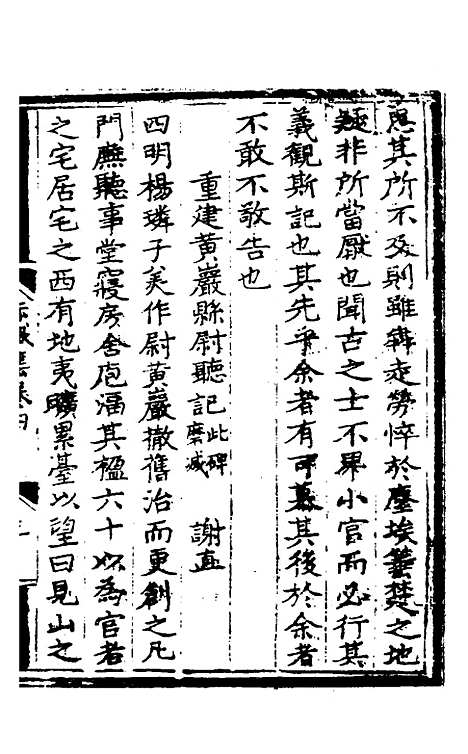 思其所不及則雖奔走勞悴於塵埃箠楚之地
疑非所當厭也聞古之士不卑小官而必行其
義觀斯記也其先乎余者有可慕其後於余者
不敢不敬告也
重建黃巖縣尉聽記此碑磨滅 謝直
四明楊璘子美作尉黃巖撤舊治而更創之凡
門廡聽事堂寢房舍庖湢其楹六十以為官者
之宅居宅之西有地夷曠累臺以望曰見山之